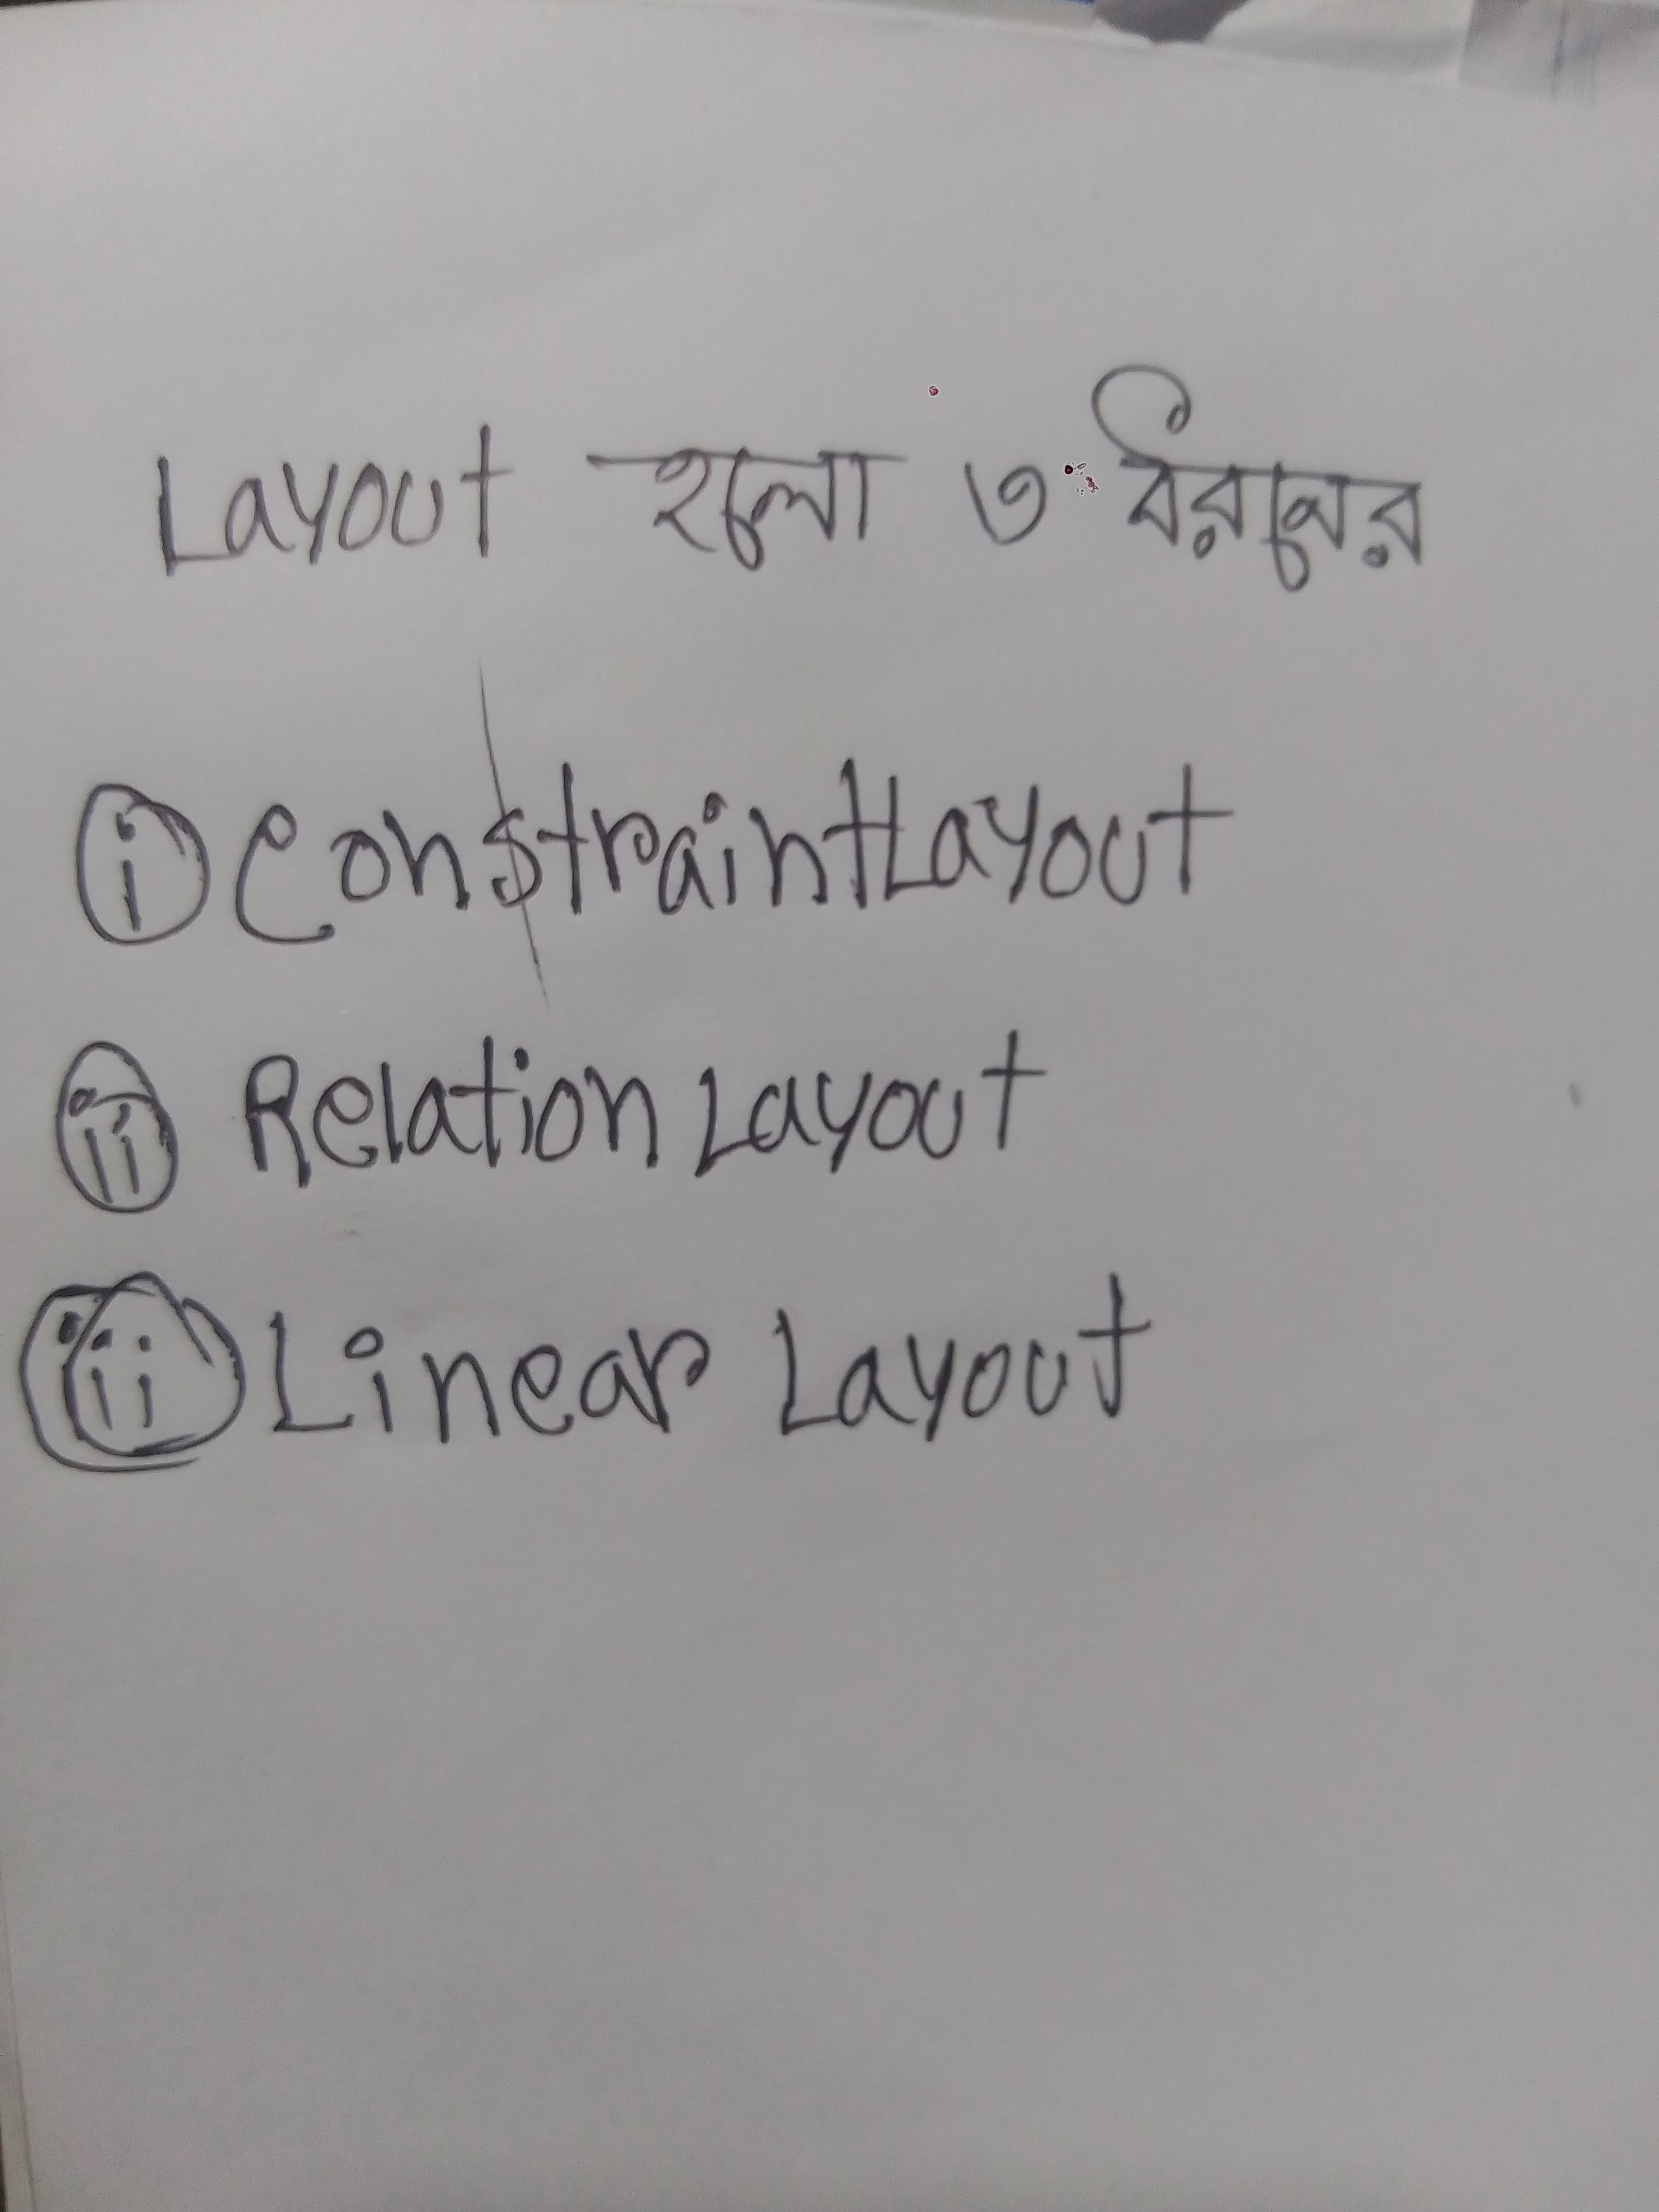 Layout হলো ৩ ধরনের
i ConstraintLayout
ii Relation Layout
iii Linear Layout